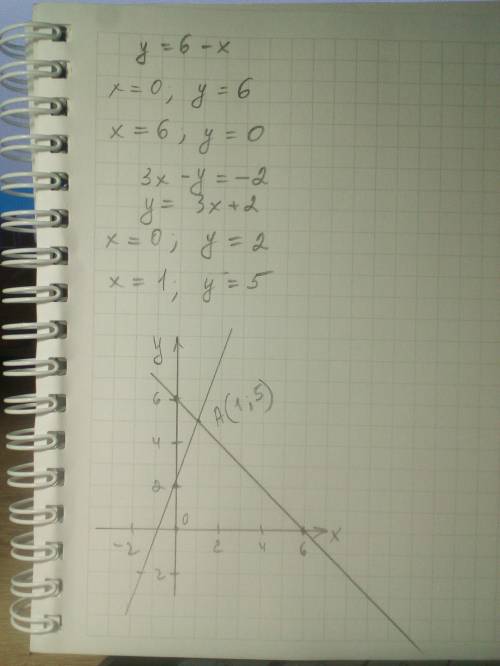 y = 6 - x
x = 0, y = 6
x = 6, y = 0
3x - y = -2
y = 3x + 2
x = 0; y = 2
x = 1; y = 5
y
6
A(1;5)
4
2
0
-2 2 4 6 x
-2